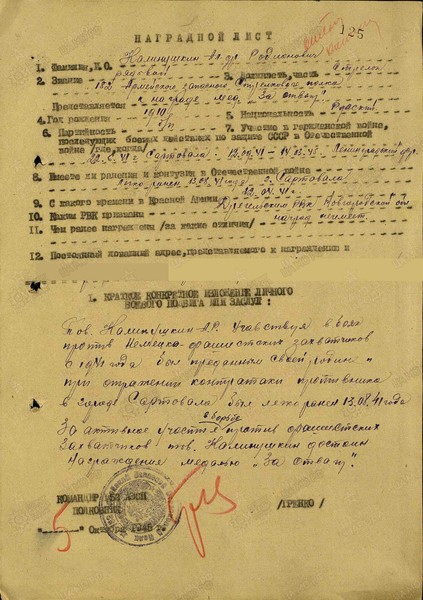 125
НАГРАДНОЙ ЛИСТ
1. Фамилия, И.О. Калинушкин Ал-др Родионович
2. Звание рядовой 3. Должность, часть стрелок
Армейского запасного Стрелкового полка
Представляется к награде мед. „За отвагу"
4. Год рождения 1910 5. Национальность Русский
6. Партийность б/п 7. Участие в гражданской войне,
последующих боевых действиях по защите СССР и Отечественной
войне /где, когда/ Сартовала
8. Имеете ли ранения и контузии в Отечественной войне
легко ранен 13.08.41 года г. Сартовала
9. С какого времени в Красной Армии
10. Каким РВК призван РВК Новгородской
11. Чем ранее награжден /за какие отличия/ наград не имеет
12. Постоянный домашний адрес, представляемого к награждению и
1. КРАТКОЕ КОНКРЕТНОЕ ИЗЛОЖЕНИЕ ЛИЧНОГО
БОЕВОГО ПОДВИГА ИЛИ ЗАСЛУГ:
Тов. Калинушкин А.Р. Участвуя в боях
против Немецко-фашистских захватчиков
с 1941 года был преданным своей родине
при отражении контратаки противника
в городе Сартовала был легко ранен 13.08.41 года
За активное участие в борьбе против фашистских
Захватчиков тов. Калинушкин достоин
Награждения медалью „За Отвагу".
КОМАНДИР АЗСП
ПОЛКОВНИК /ГРЕНКО/
5 Октября 1945 г.